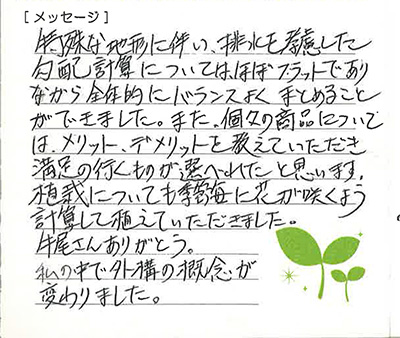 [メッセージ]
特殊な地形に伴い、排水を考慮した
勾配計算については、ほぼフラットであり
ながら全体的にバランスよくまとめること
ができました。また、個々の商品について
は、メリット、デメリットを教えていただき
満足の行くものが選べれたと思います。
植栽についても季節毎に花が咲くよう
計算して植えていただきました。
牛尾さんありがとう。
私の中で外構の概念が
変わりました。